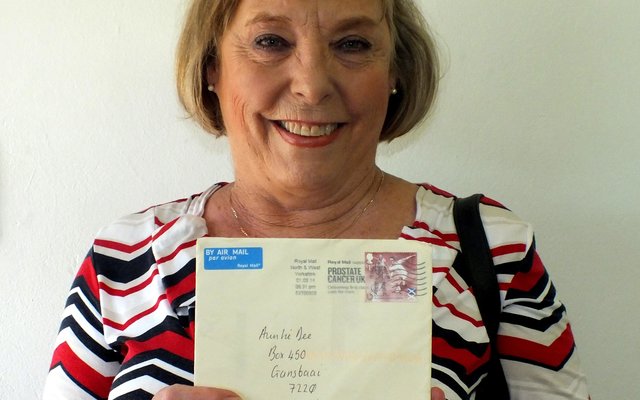 BY AIR MAIL
par avion
Royal Mail
Royal Mail
North & West
Yorkshire
Royal Mail
PROSTATE
CANCER UK
Auntie Dee
Box 450
Gansbaai
7220